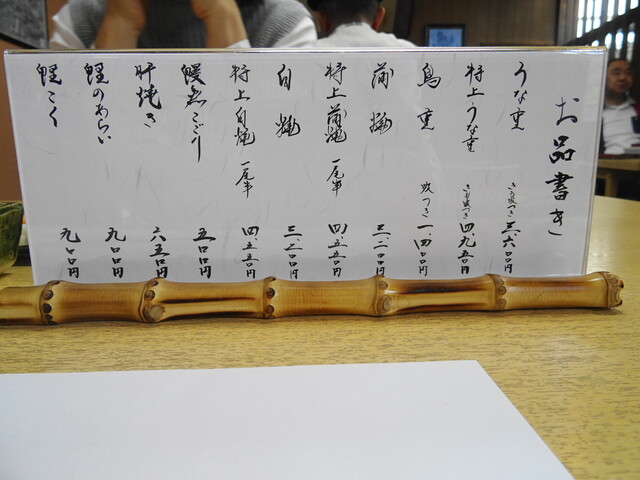 お品書き
うな重 きも吸つき 三、六〇〇円
特上うな重 きも吸つき 四、九五〇円
鳥重 吸つき 一、四〇〇円
蒲焼 三、二〇〇円
特上蒲焼 一尾半 四、五五〇円
白焼 三、二〇〇円
特上白焼 一尾半 四、五五〇円
鰻煮こごり 五〇〇円
肝焼き 六五〇円
鯉のあらい 九〇〇円
鯉こく 九〇〇円